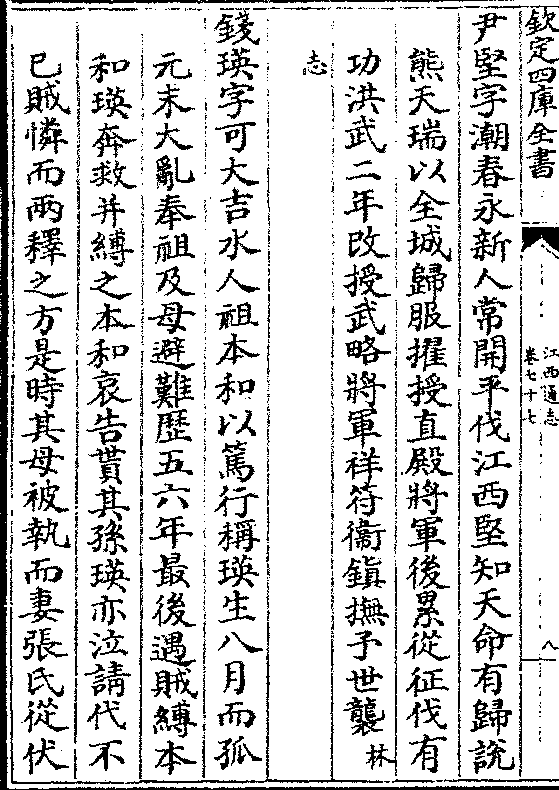 欽定四庫全書
江西通志
卷七十七
八
尹堅字潮春永新人常開平伐江西堅知天命有歸説
熊天瑞以全城歸服擢授直殿將軍後累從征伐有
功洪武二年改授武略將軍祥符衞鎮撫予世襲林
志
錢瑛字可大吉水人祖本和以篤行稱瑛生八月而孤
元末大亂奉祖及母避難歴五六年最後遇賊縛本
和瑛奔救并縛之本和哀告貰其孫瑛亦泣請代不
已賊憐而兩釋之方是時其母被執而妻張氏從伏